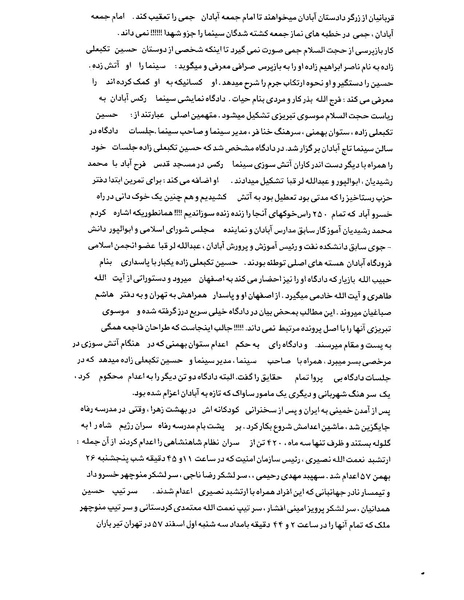 قربانیان از زرگر دادستان آبادان میخواهند تا امام جمعه آبادان جمی را تعقیب کند. امام جمعه
آبادان ، جمی در خطبه های نماز جمعه کشته شدگان سینما را جزو شهدا !!!!!! نمی داند.
کار بازپرسی از حجت السلام جمی صورت نمی گیرد تا اینکه شخصی از دوستان حسین تکبعلی
زاده به نام ناصر ابراهیم زاده او را به بازپرس صرافی معرفی و میگوید : سینما را او آتش زده .
حسین را دستگیر و او نحوه ارتکاب جرم را شرح میدهد. او کسانیکه به او کمک کرده اند را
معرفی می کند : فرج الله بذر کار و مردی بنام حیات . دادگاه نمایشی سینما رکس آبادان به
ریاست حجت السلام موسوی تبریزی تشکیل میشود. متهمین اصلی عبارتند از : حسین
تکبعلی زاده ، ستوان بهمنی ، سرهنگ خنا فر ، مدیر سینما و صاحب سینما .جلسات دادگاه در
سالن سینما تاج آبادان بر گزار شد. در دادگاه مشخص شد که حسین تکبعلی زاده جلسات خود
را همراه با دیگر دست اندر کاران آتش سوزی سینما رکس در مسجد قدس فرح آباد با محمد
رشیدیان ، ابوالپور و عبدالله لر قبا تشکیل میدادند. او اضافه می کند : برای تمرین ابتدا دفتر
حزب رستاخیز را که مدتی بود تعطیل بود به آتش کشیدیم و هم چنین یک خوک دانی در راه
خسرو آباد که تمام ۲۵۰ راس خوکهای آنجا را زنده زنده سوزاندیم !!!! همانطوریکه اشاره کردم
محمد رشیدیان آموز گار سابق مدارس آبادان و نماینده مجلس شورای اسلامی و ابوالپور دانش
- جوی سابق دانشکده نفت و رئیس آموزش و پرورش آبادان ، عبدالله لر قبا عضو انجمن اسلامی
فرودگاه آبادان هسته های اصلی توطئه بودند. حسین تکبعلی زاده یکبار با پاسداری بنام
حبیب الله بازیار که دادگاه او را نیز احضار می کند به اصفهان میرود و دستوراتی از آیت الله
طاهری و آیت الله خادمی میگیرد . از اصفهان او و پاسدار همراهش به تهران و به دفتر هاشم
صباغیان میروند. این مطالب بمحض بیان در دادگاه خیلی سریع درز گرفته شده و موسوی
تبریزی آنها را با اصل پرونده مرتبط نمی داند. !!!!! جالب اینجاست که طراحان فاجعه همگی
به پست و مقام میرسند. و دادگاه رای به حکم اعدام ستوان بهمنی که در هنگام آتش سوزی در
مرخصی بسر میبرد ، همراه با صاحب سینما ، مدیر سینما و حسین تکبعلی زاده میدهد که در
جلسات دادگاه بی پروا تمام حقایق را گفت. البته دادگاه دو تن دیگر را به اعدام محکوم کرد ،
یک سر هنگ شهربانی و دیگری یک مامور ساواک که تازه به آبادان اعزام شده بود.
پس از آمدن خمینی به ایران و پس از سخنرانی کودکانه اش در بهشت زهرا ، وقتی در مدرسه رفاه
جایگزین شد ، ماشین اعدامش شروع بکار کرد. بر پشت بام مدرسه رفاه سران رژیم شاه را به
گلوله بستند و ظرف تنها سه ماه ، ۴۲۰ تن از سران نظام شاهنشاهی را اعدام کردند از آن جمله :
ارتشبد نعمت الله نصیری ، رئیس سازمان امنیت که در ساعت ۱۱ و ۴۵ دقیقه شب پنجشنبه ۲۶
بهمن ۵۷ اعدام شد. سپهبد مهدی رحیمی ، سر لشکر رضا ناجی ، سر لشکر منوچهر خسرو داد
و تیمسار نادر جهانبانی که این افراد همراه با ارتشبد نصیری اعدام شدند. سر تیپ حسین
همدانیان ، سر لشکر پرویز امینی افشار ، سر تیپ نعمت الله معتمدی کردستانی و سر تیپ منوچهر
ملک که تمام آنها را در ساعت ۲ و ۴۴ دقیقه بامداد سه شنبه اول اسفند ۵۷ در تهران تیر باران